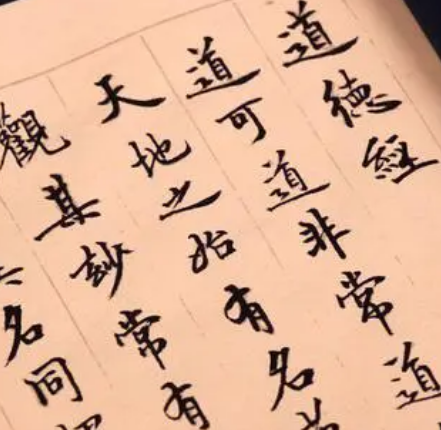 道德經
道可道非常道
天地之始有名
觀其玅常有
名同